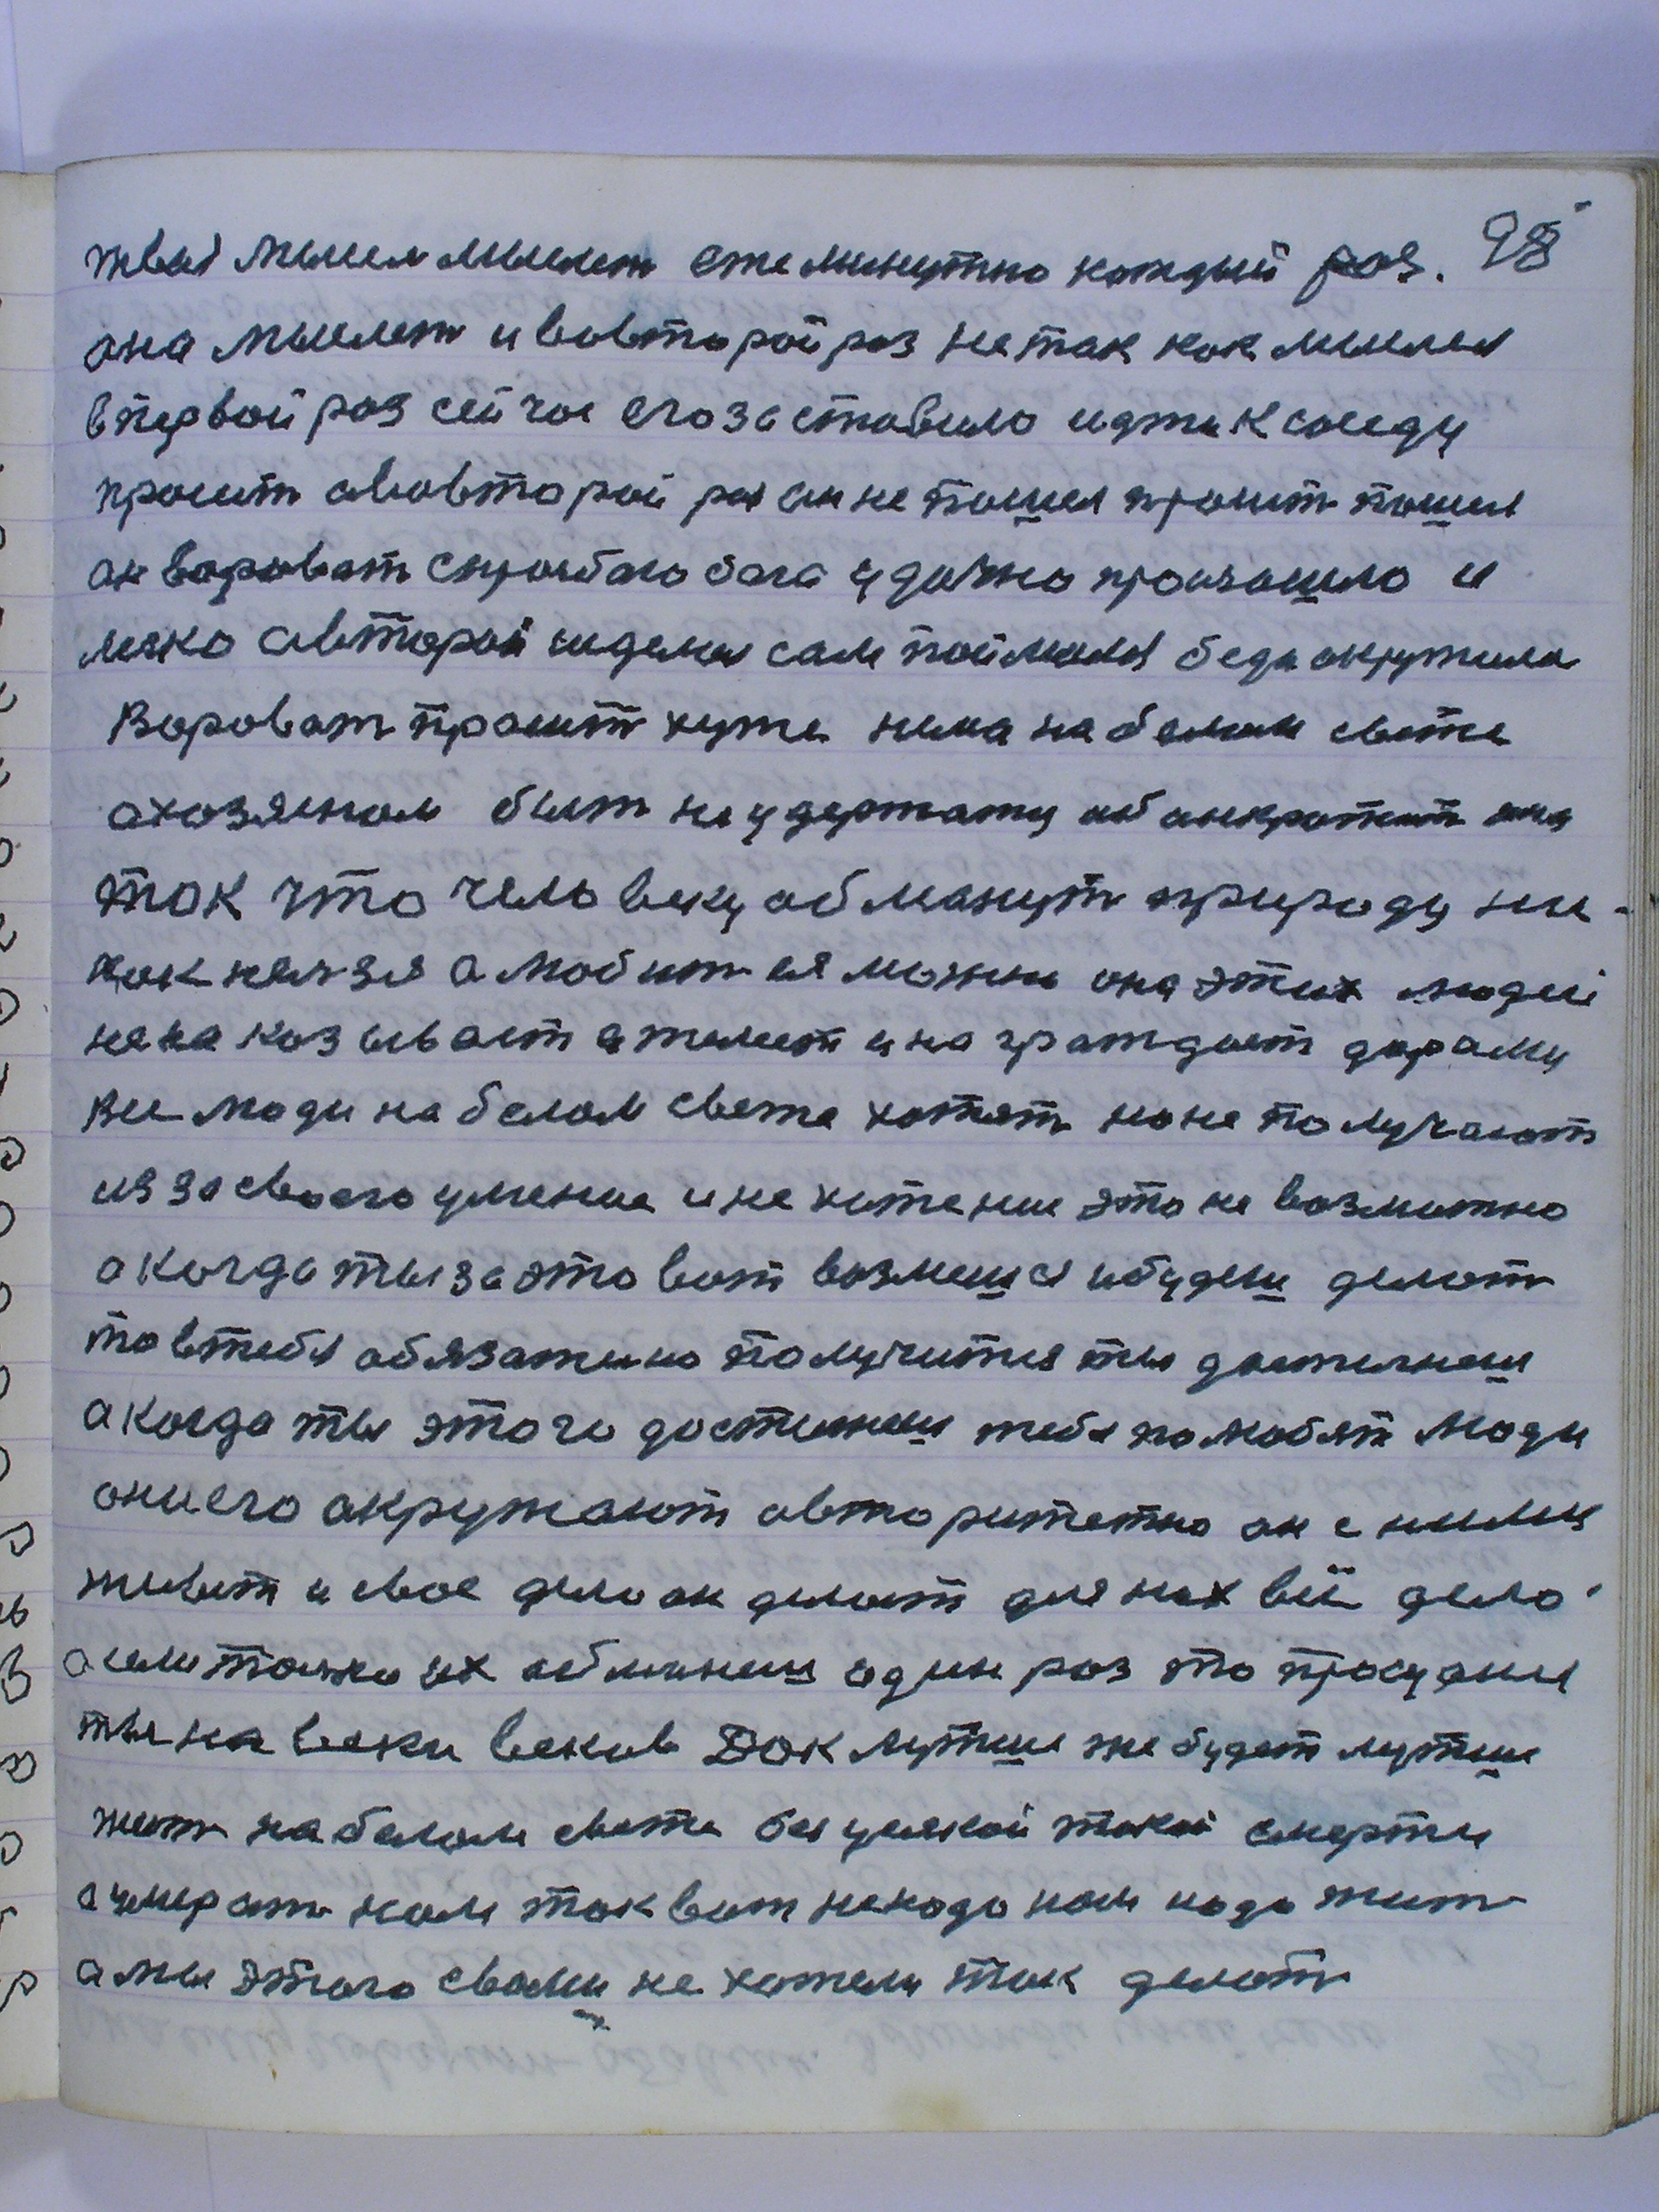 98
твая мысел мыслет ежеминутно каждый раз.
она мыслет и вовторой раз не так как мыслел
впервой раз сейчас его заставило идти к соседу
просит авовторой раз он не пошел просит пошел
он вороват спросбаю бога удачно произошло и
легко авторой сидемал сам поймался беда окружила
Вороват просит хуже нема на белом свете
ахозяеном быт неудержатц обанкротит она
так что человеку обманут природу ни-
как нельзя а любит ея можно она этих людей
не наказывает а жалеет и награждает дарами
Все люди на белом свете хотят но не получают
из за своего умение и не хотение это не возможно
а когда ты за это вот возмешся ибудеш делат
то втебя обязателно получится ты достигнеш
а когда ты этого достигнеш тебя полюбят люди
они его окружают авторитетно он с ними
живет и свое дело он делает для них всё дело
а если толко их обманеш один раз то проудиш
ты на веки веков Дак лутше же будет лутше
жит на белом свете без усякой такой смерти
а умерат нам так вот ненадо нам надо жит
а мы этого свами не хотели так делат